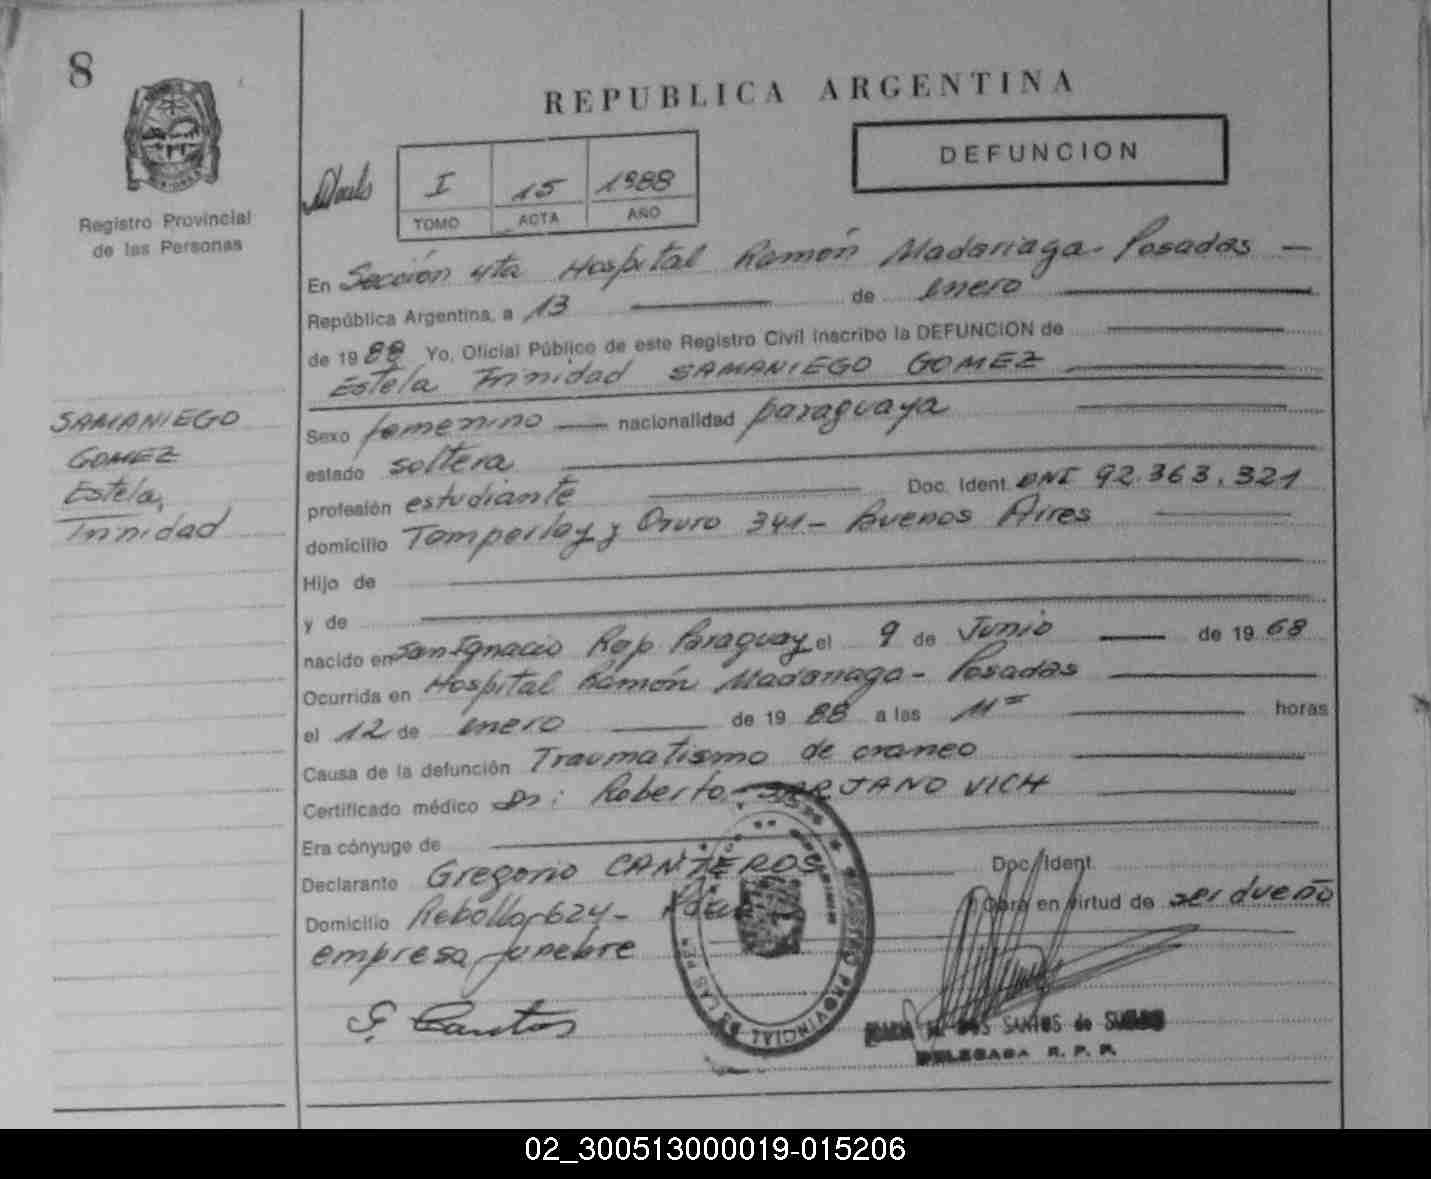 8
REPUBLICA ARGENTINA
DEFUNCION
I 15 1988
TOMO ACTA AÑO
Registro Provincial
de las Personas
En Sección 4ta Hospital Ramón Madariaga - Posadas -
República Argentina, a 13 de enero
de 1988 Yo, Oficial Público de este Registro Civil inscribo la DEFUNCION de
Estela Trinidad SAMANIEGO GOMEZ
SAMANIEGO
GOMEZ
Estela,
Trinidad
Sexo femenino nacionalidad paraguaya
estado soltera
profesión estudiante Doc. Ident. DNI 92.363.321
domicilio Tomperley y Oruro 341 - Buenos Aires
Hijo de
y de
nacido en San Ignacio Rep Paraguay el 9 de Junio de 1968
Ocurrida en Hospital Ramón Madariaga - Posadas
el 12 de enero de 1988 a las 11= horas
Causa de la defunción Traumatismo de craneo
Certificado médico Dr: Roberto VICH
Era cónyuge de
Declarante Gregorio CANTEROS Doc. Ident.
Domicilio 624 - Obra en virtud de ser dueño
empresa funebre
REGISTRO PROVINCIAL DE LAS
DOS SANTOS de
DELEGADA R. P. P.
02_300513000019-015206